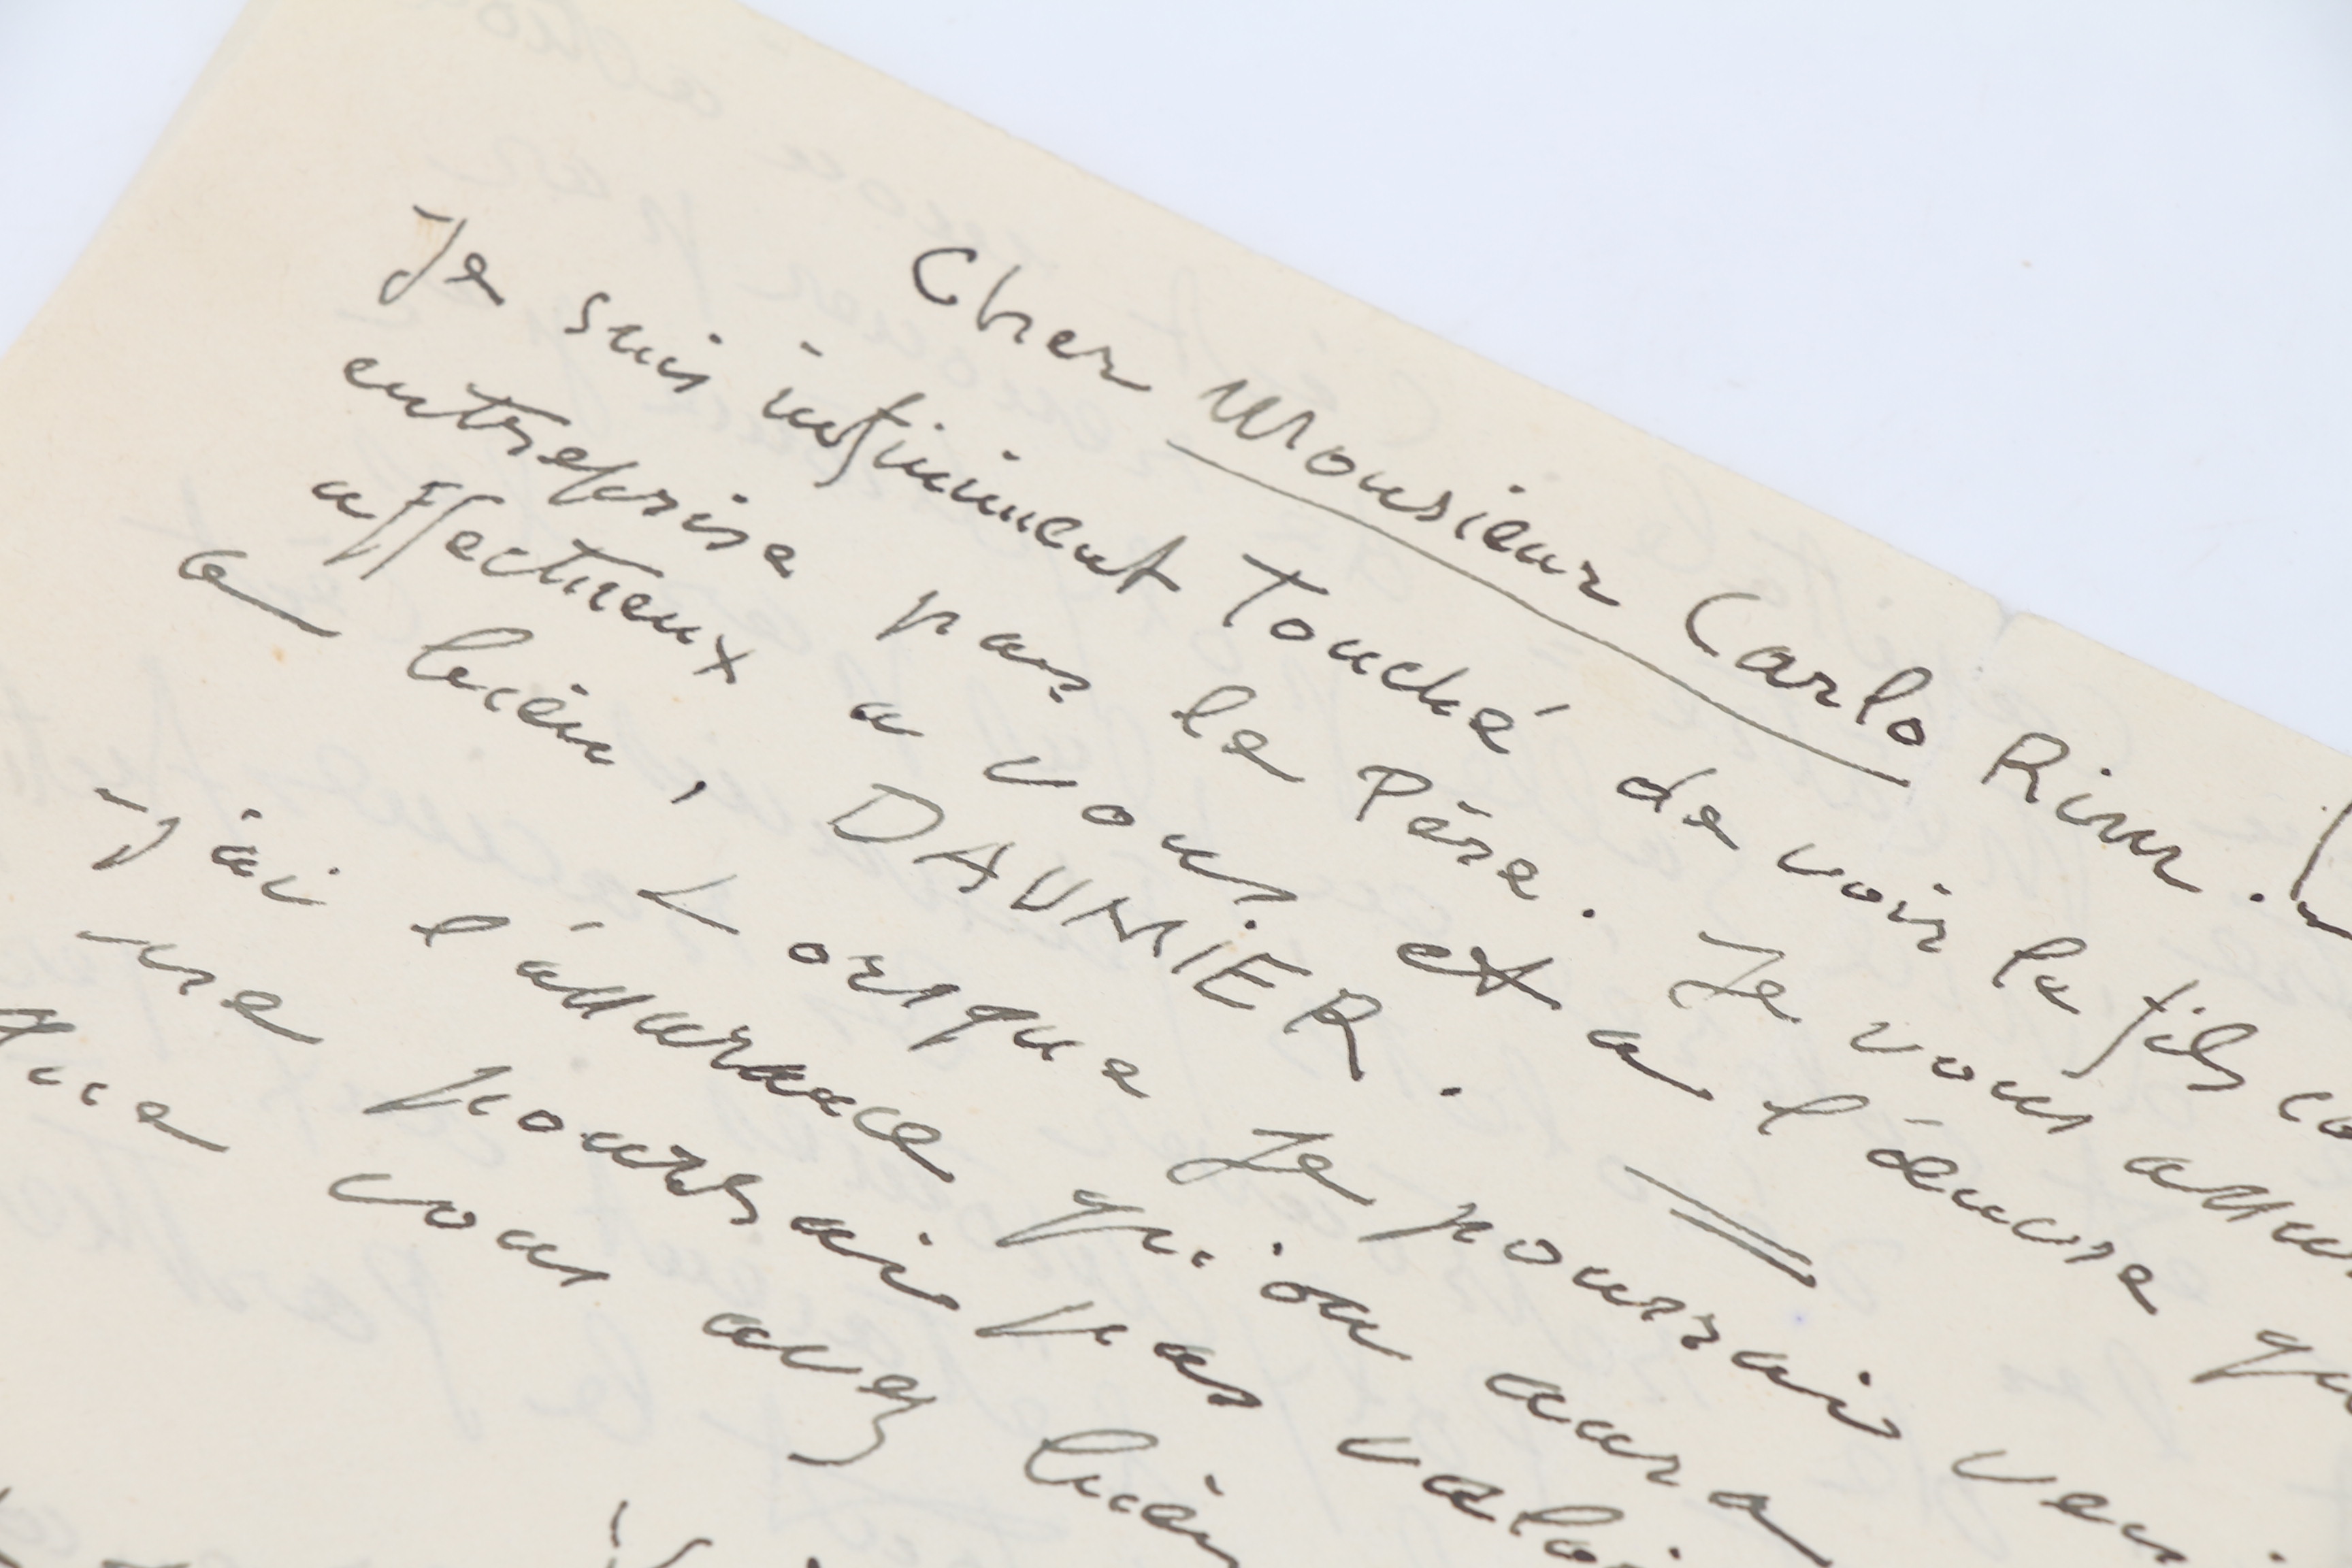 Cher Monsieur Carlo Rim.
Je suis infiniment Touché de voir le fils co
entreprise par le Père. Je vous assur
affectueux a vous et a l'œuvre qu
a bien, DAUMIER.
Lorsque Je pourrai ven
j'ai l'assurance qu'on aura
ne pourrai pas valoi
que vous avez bien